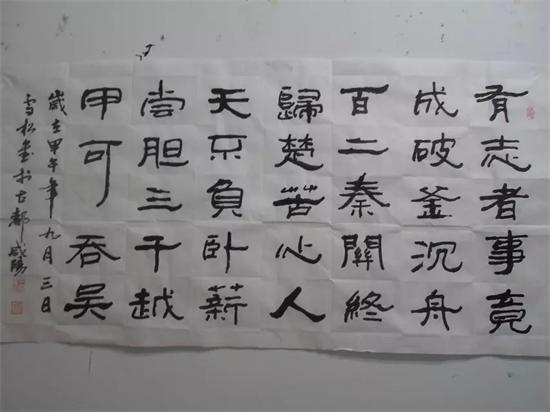 有志者事竟
成破釜沉舟
百二秦關終
歸楚苦心人
天不負卧薪
尝胆三千越
甲可吞吴
歲在甲午年九月三日
雪松書於古都咸陽